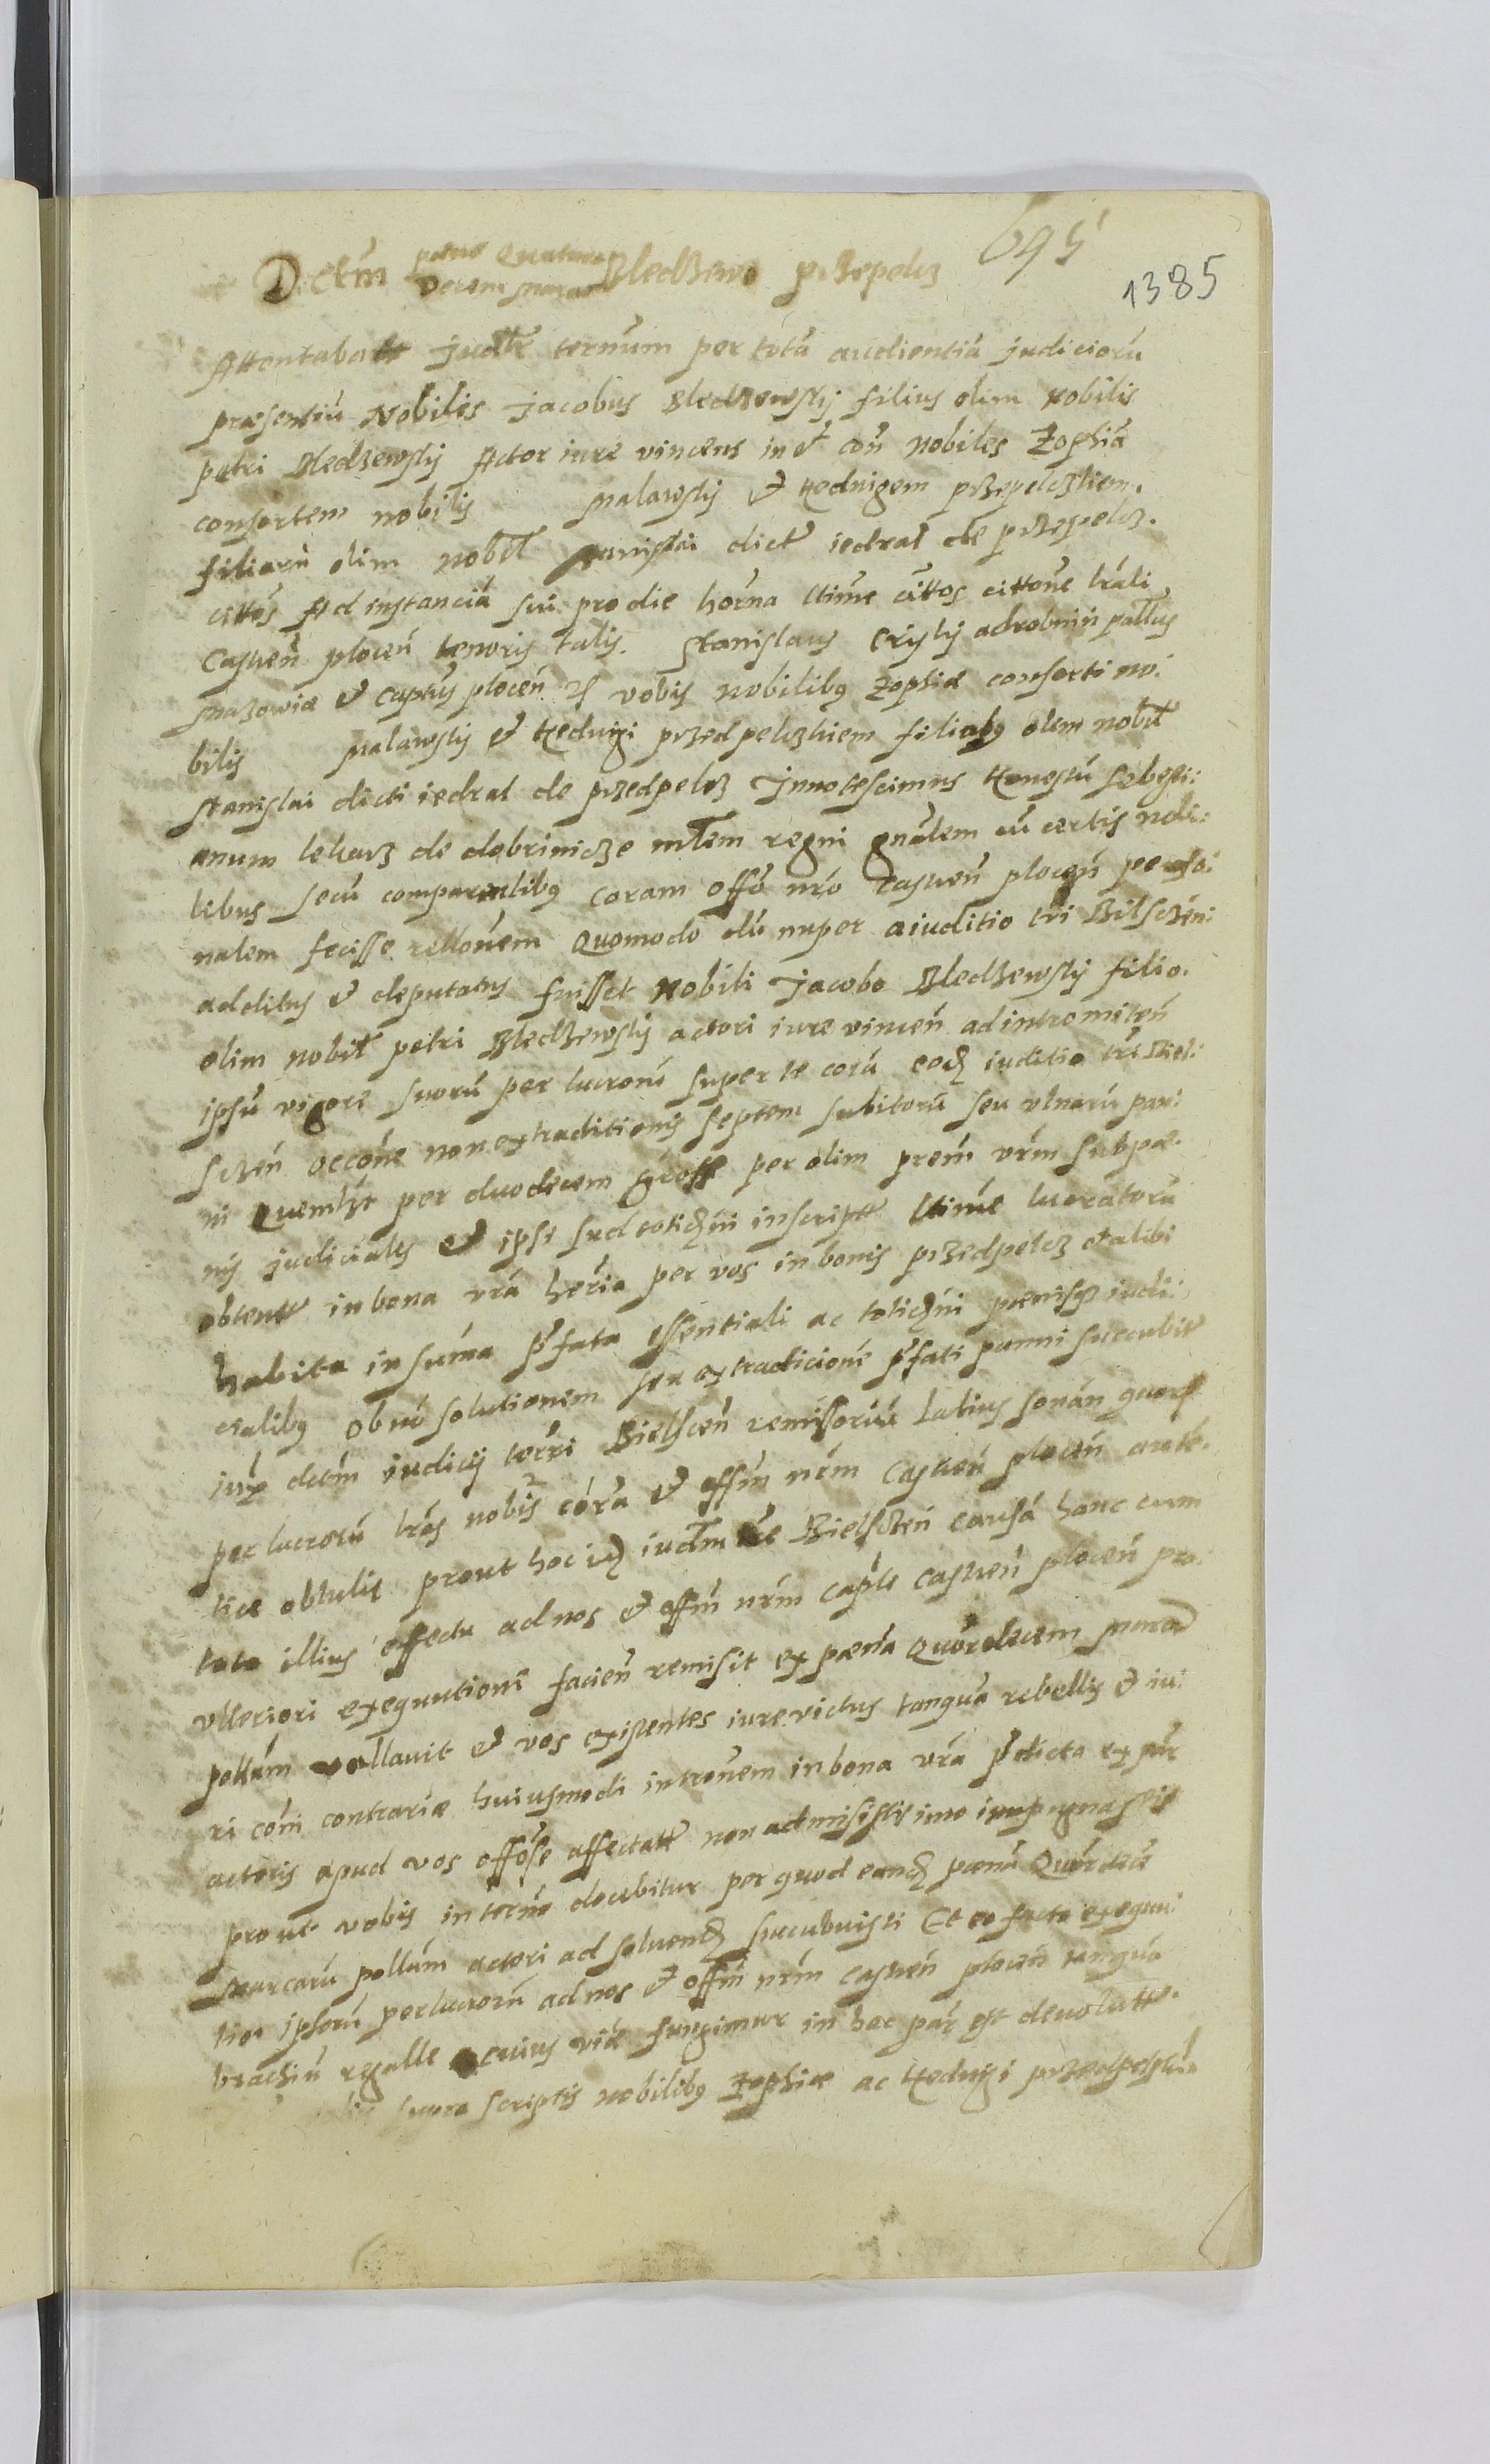 695
1385
Dctm pene Quatuor
decem marcar Bledzewo przepelcz
Attentabatt Judtr ternum per totá audientiá judicioru
præsentiú Nobilis Jacobus Bledzewskij filius olim Nobilis
petri Bledzewskij Actor iure vincens in et con Nobiles Zophiá
consortem nobilis Malawskij et Hedvigem przepelczkiem.
filiarú olim Nobil Stanislai dict iedral de przepelcz.
cittos Ad instanciá sui pro die horna ltime cittos cittone lrali
Castren plocen tenoris talis. Stanislaus Crÿskij adrobnin pallus
Mazowiæ et Captus plocen vobis Nobilibq Zophiæ consorti no:
bilis Malawskij et Hedvigi przedpelczkiem filiabq olim nobil
Stanislai dicti iedral de przedpelcz Innotescimus Honestú Sebesti:
anum lekarz de dobrinicze mlem regni gnalem cú certis nobi:
lebus secú comparentibq coram offo nro Castren plocen perso:
nalem fecisse rellonem Quomodo dú nuper a iuditio tri Bilsczen:
additus et deputatus fuisset Nobili Jacobo Bledzewskij filio.
olim Nobil petri Bledzewskij actori iure vincen ad intromiten
ipsú vigore suorú per lucrorú super te corá eodz iuditio tri Biel:
sczen occone non extraditionis septem subitorú seu vlnarú pan:
ni Quemlzt per duodecem gross per olim prem vrm sub pæ.
nis judicialis et ipsi sud totidzm inscript ltime lucratorú
obtent in bona vra heria per vos in bonis przedpelcz et alibi
habita in suma pfata essentiali ac totidzni pænisqz iudi:
cialibq ob nó solutionem seu extradicione pfati panni succubit
iuxt dctm iudicij terri Bielscen remissoriú latius sonan quorq
perlucrorú lras nobis corá et offm nrm Castren plocen aute.
tice obtulit prout hoc idz iudm tre Bielsczen causá hanc cum
toto illius effectu ad nos et offm nrm capte Castren plocen pro
vlteriori exequutioni facien remisit ex pæna Quordecem marcar
pollám vallavit et vos existentes iure victus tanquá rebellis et iu:
ri comi contrariæ huiusmodi intronem in bona vra pdicta ex par
actoris apud vos offose affectatt non admisistis imo impugnastis
prout vobis in termo docebitur per quod eandz pæná Quordecé
Marcarú pollám actori ad soluendz succubuisti Et eo facto exequu:
tio ipsorú perlucrorú ad nos et offm nrm Castren plocen tanqua
brachiú regalle cuius vicæ fungimur in hac par est deuolutt.
supra scriptis nobilibq Zophiæ ac Hedvigi przedpelczki